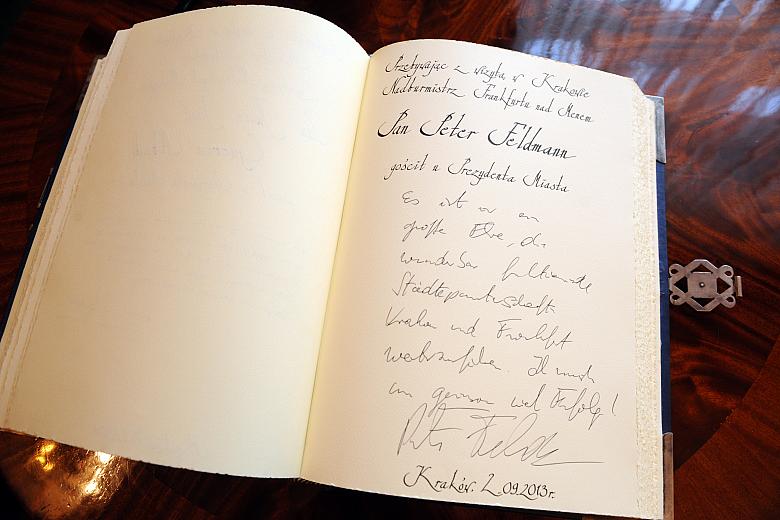 Przebywając z wizytą w Krakowie
Nadburmistrz Frankfurtu nad Menem
Pan Peter Feldmann
gościł u Prezydenta Miasta
Es ist
große Ehre, die
wunderbar funktionierende
Städtepartnerschaft
Krakau und Frankfurt
weiterzuführen. Ich wünsche
viel Erfolg!
Peter Feldmann
Kraków. 2.09.2013r.